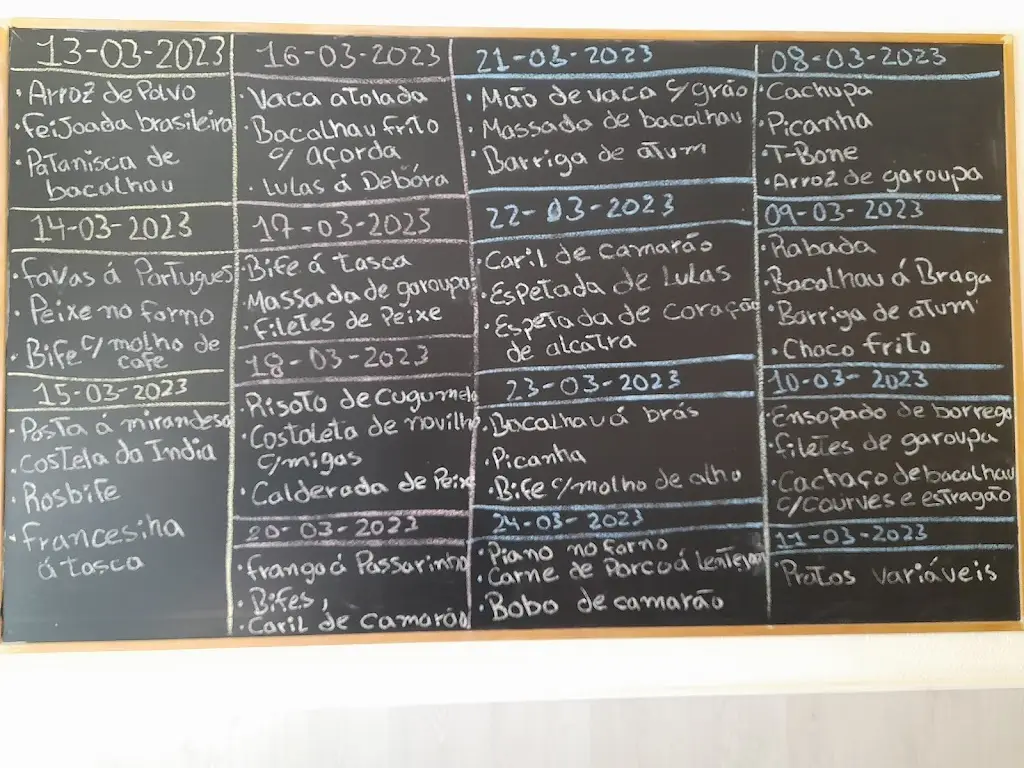 13-03-2023
• Arroz de Polvo
• Feijoada brasileira
• Patanisca de
bacalhau
14-03-2023
• Favas á Portugues
• Peixe no forno
• Bife c/ molho de
cafe
15-03-2023
• Posta á mirandesa
• Costela da India
• Rosbife
• Francesinha
á tasca
16-03-2023
• Vaca atolada
• Bacalhau frito
c/ açorda
• Lulas á Debóra
17-03-2023
• Bife á tasca
• Massada de garoupa
• Filetes de Peixe
18-03-2023
• Risoto de cugumelo
• Costoleta de novilho
c/migas
• Calderada de Peixe
20-03-2023
• frango á Passarinho
• Bifes,
• Caril de camarão
21-03-2023
• Mão de vaca c/ grão
• Massada de bacalhau
• Barriga de atum
22-03-2023
• Caril de camarão
• Espetada de Lulas
• Espetada de coração
de alcatra
23-03-2023
• Bacalhau á brás
• Picanha
• Bife c/molho de alho
24-03-2023
• Piano no forno
• Carne de Porco á lentejan
• Bobo de camarão
08-03-2023
• Cachupa
• Picanha
• T-Bone
• Arroz de garoupa
09-03-2023
• Rabada
• Bacalhau á Braga
• Barriga de atum
• Choco frito
10-03-2023
• Ensopado de borrego
• filetes de garoupa
• Cachaço de bacalhau
c/courves e estragão
11-03-2023
• Pratos variáveis